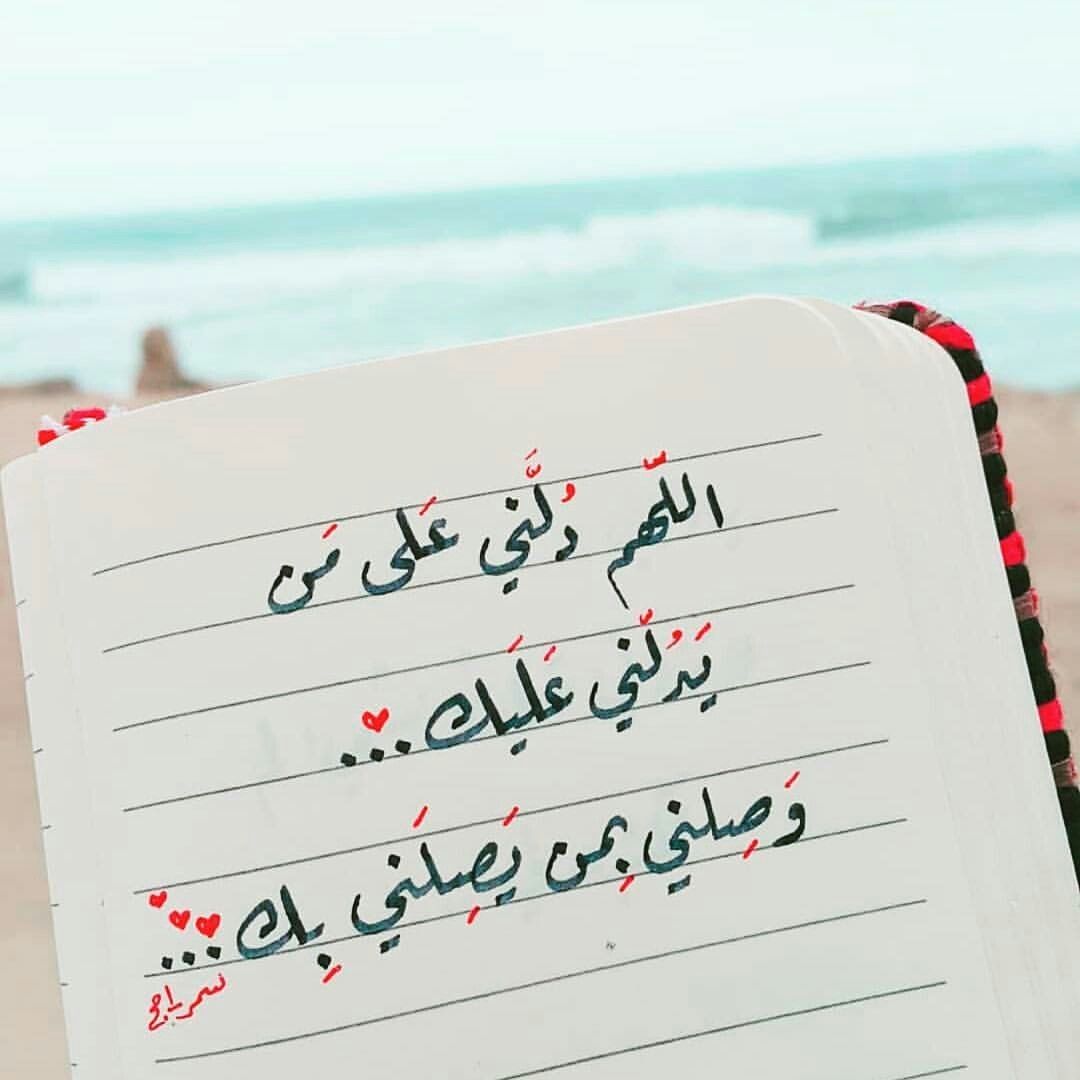 اللّهم دُلَّني عَلى مَن
يَدُلّني عَلَيك...
وَصِلني بِمن يَصِلَني بِك...